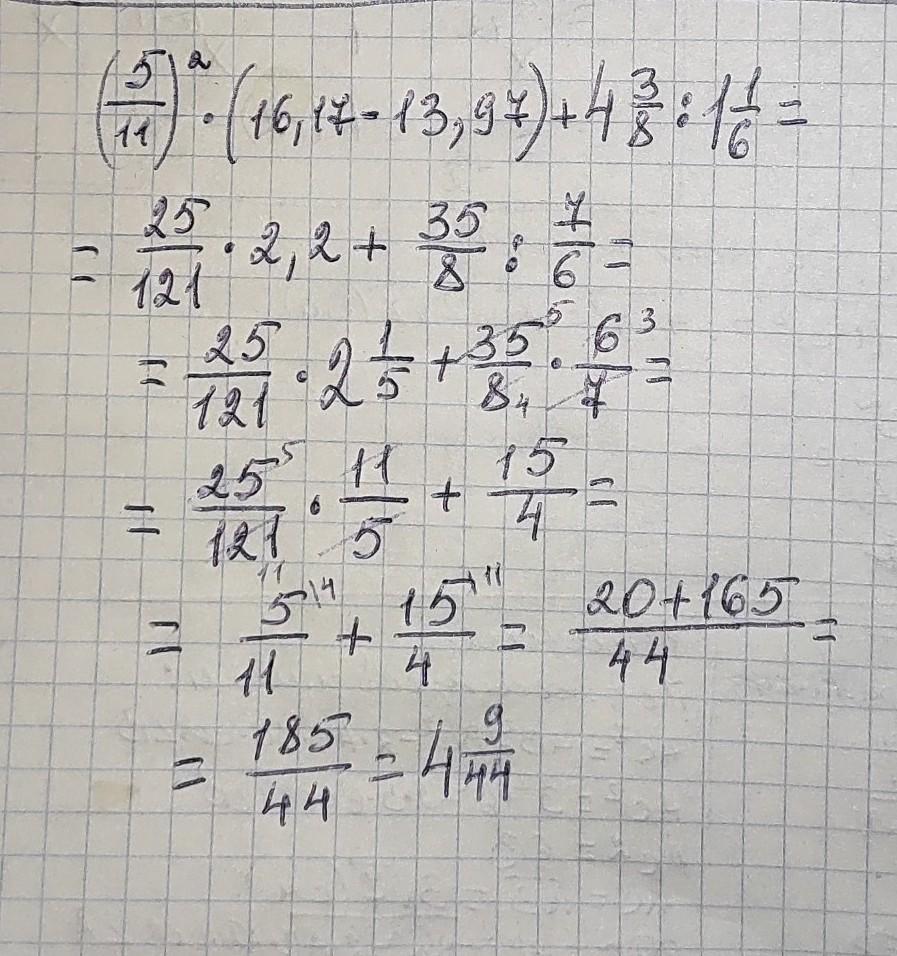 (5/11)² · (16,17 - 13,97) + 4 3/8 : 1 1/6 =
= 25/121 · 2,2 + 35/8 : 7/6 =
= 25/121 · 2 1/5 + 35⁵/8₄ · 6³/7 =
= 25⁵/121₁₁ · 11/5 + 15/4 =
= 5\⁴/11 + 15\¹¹/4 = 20+165/44 =
= 185/44 = 4 9/44